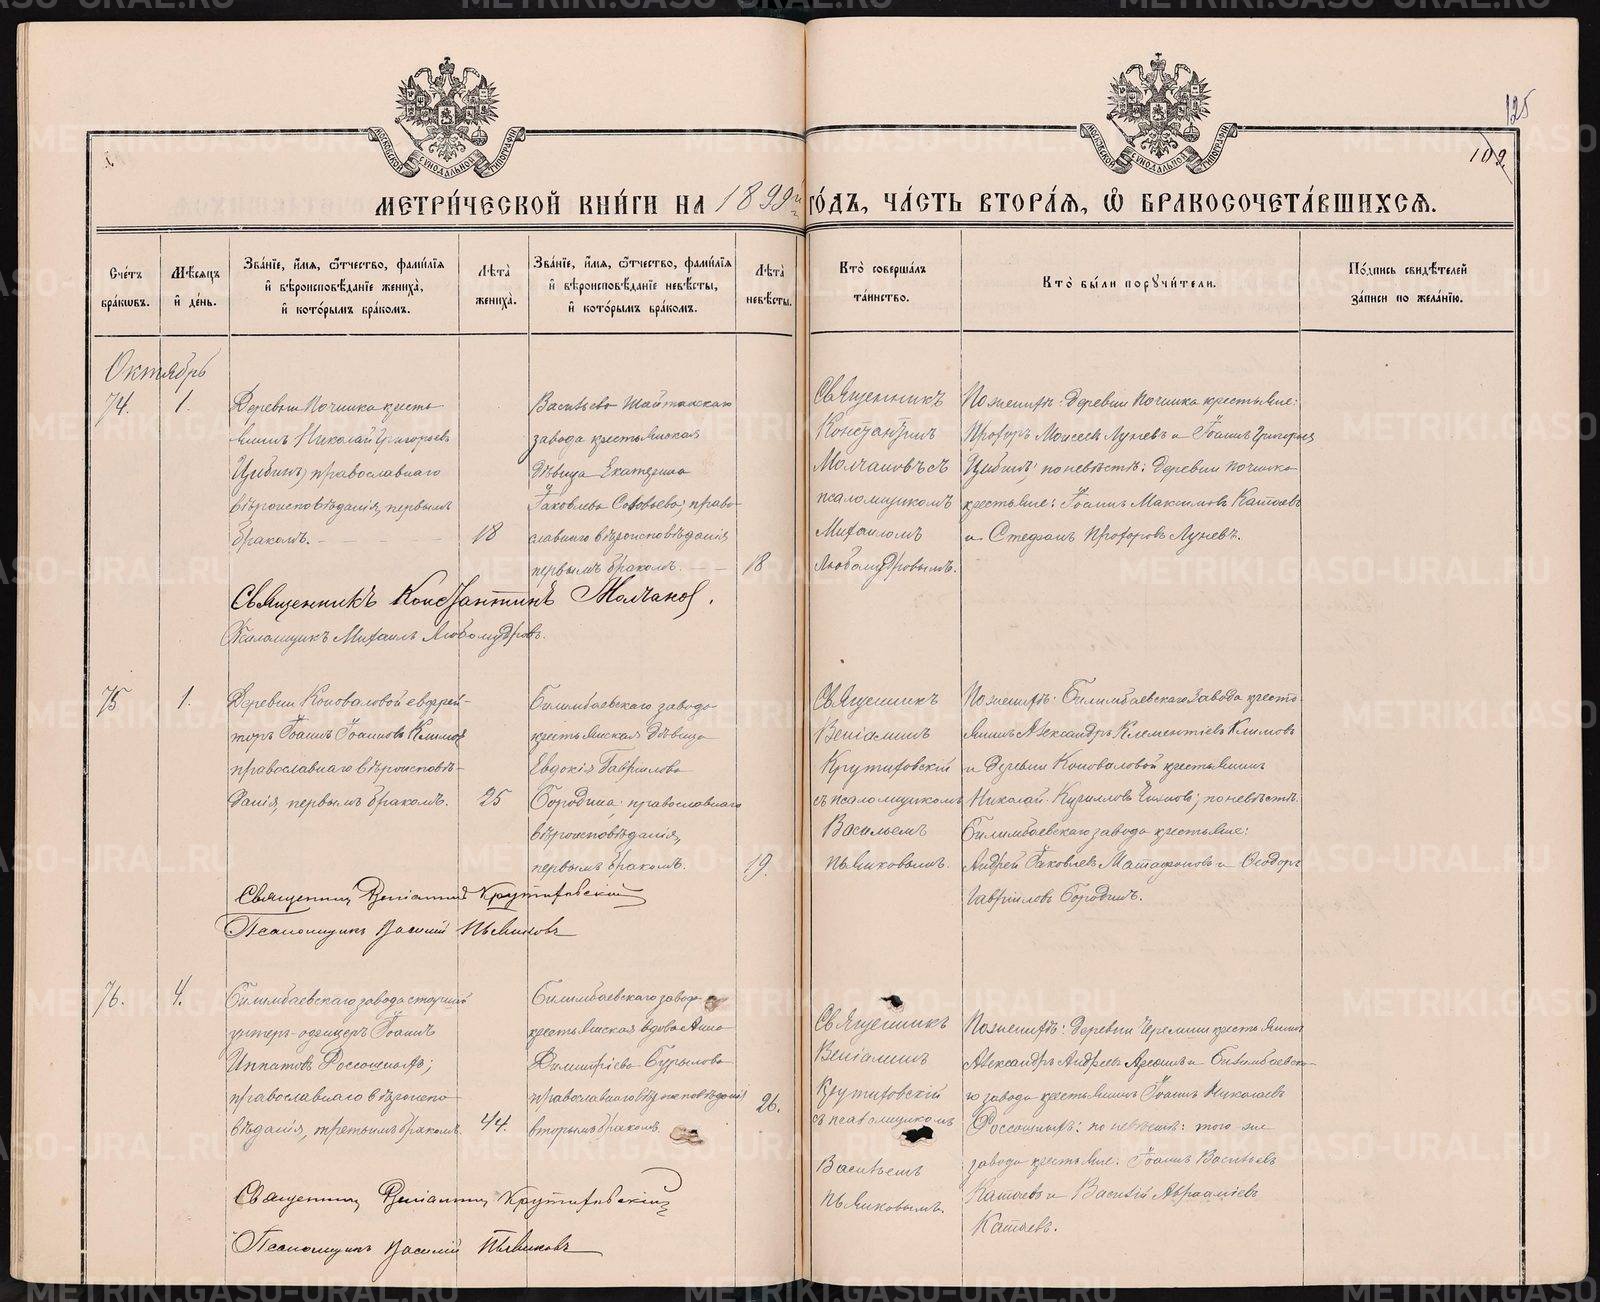 125
102
МОСКОВСКОЙ СѴНОДАЛЬНОЙ ТИПОГРАФІИ
МОСКОВСКОЙ СѴНОДАЛЬНОЙ ТИПОГРАФІИ
МЕТРИ́ЧЕСКОЙ КНИ́ГИ НА 1899й ГО́ДЪ, ЧА́СТЬ ВТОРА́Я, Ѽ БРАКОСОЧЕТА́ВШИХСЯ.
Сче́тъ бра́кѡвъ.
Мѣ́сяцъ и҆ де́нь.
Зва́нїе, и҆́мя, ѻ҆́тчество, фами́лїя и҆ вѣроисповѣ́данїе жениха̀, и҆ кото́рымъ бра́комъ.
Лѣ́та жениха̀.
Зва́нїе, и҆́мя, ѻ҆́тчество, фами́лїя и҆ вѣроисповѣ́данїе невѣ́сты, и҆ кото́рымъ бра́комъ.
Лѣ́та невѣ́сты.
Кто̀ соверша́лъ та́инство.
Кто̀ бы́ли порꙋчи́тели.
По́дпись свидѣ́телей за́писи по жела́нїю.
Октябрь
74.
1.
Деревни Починка кресть
янинъ Николай Григорьевъ
Цибинъ, православнаго
вѣроисповѣданія, первымъ
бракомъ.
18
Васильево Шайтанскаго
завода крестьянская
дѣвица Екатерина
Іаковлева Соловьева, право-
славнаго вѣроисповѣданія
первымъ бракомъ.
18
Священникъ
Константинъ
Молчановъ съ
псаломщикомъ
Михаиломъ
Любомудровымъ.
По женихѣ: Деревни Починка крестьяне:
Прохоръ Моисеевъ Луневъ и Іоаннъ Григорьев
Цибинъ; по невѣстѣ: Деревни Починка
крестьяне: Іоаннъ Максимовъ Катаевъ
и Стефанъ Прохоровъ Луневъ.
Священникъ Константинъ Молчанов.
Псаломщикъ Михаилъ Любомудровъ.
75
1.
Деревни Коноваловой ефрей-
торъ Іоаннъ Іоанновъ Климов
православнаго вѣроисповѣ-
данія, первымъ бракомъ.
25
Билимбаевскаго завода
крестьянская дѣвица
Евдокія Гавріилова
Бородина, православнаго
вѣроисповѣданія,
первымъ бракомъ.
19.
Священникъ
Веніаминъ
Крутиховскій
съ псаломщикомъ
Васильемъ
Пьянковымъ.
По женихѣ: Билимбаевскаго завода кресть-
янинъ Александръ Клементіевъ Климовъ
и Деревни Коноваловой крестьянинъ
Николай Кирилловъ; по невѣстѣ:
Билимбаевскаго завода крестьяне:
Андрей Іаковлевъ Матафоновъ и Ѳеодоръ
Гавріиловъ Бородинъ.
Священникъ Веніаминъ Крутиховскій
Псаломщикъ Василій Пьянковъ
76.
4.
Билимбаевскаго завода старшій
унтеръ-офицеръ Іоаннъ
Ипатовъ Россошныхъ;
православнаго вѣроиспо-
вѣданія, третьимъ бракомъ.
44.
Билимбаевскаго завода
крестьянская вдова Анна
Димитріева Бурылова
православнаго вѣроисповѣданія
вторымъ бракомъ.
26.
Священникъ
Веніаминъ
Крутиховскій
съ псаломщикомъ
Васильемъ
Пьянковымъ.
По женихѣ: Деревни Черемши крестьянинъ
Александръ Андреевъ и Билимбаевска-
го завода крестьянинъ Іоаннъ Николаевъ
Россошныхъ: по невѣстѣ: того же
завода крестьяне: Іоаннъ Васильевъ
Катаевъ и Василій Авраамiевъ
Катаевъ.
Священникъ Веніаминъ Крутиховскій
Псаломщикъ Василій Пьянковъ
METRIKI.GASO-URAL.RU